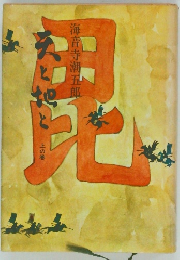 海音寺潮五郎
毘
天と地と
上の巻